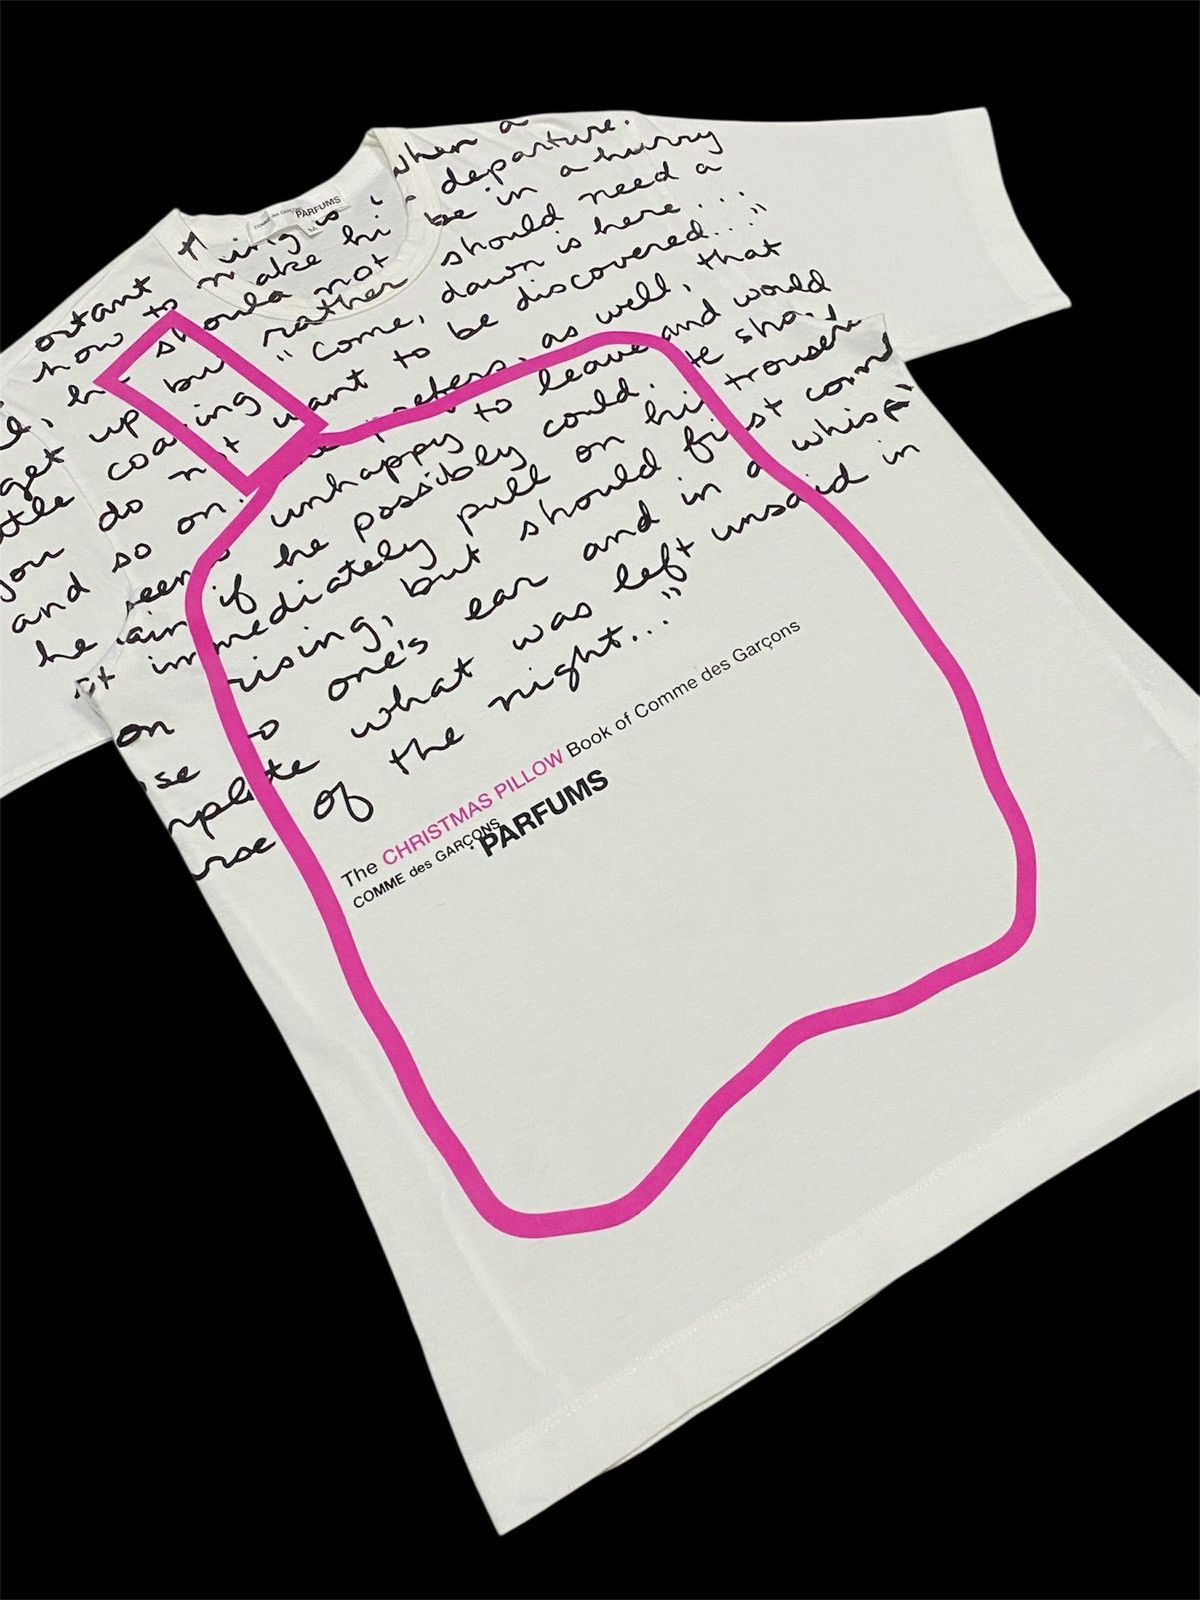 ortant thing is when a
how to make hi departure.
he should not be in a hurry
get up but rather should need a
ttle coaxing "Come, dawn is here...
you do not want to be discovered..."
and so on. prefers, as well, that
he seem unhappy to leave and would
ain if he possibly could. He should
ot immediately pull on his trouser
on rising, but should first come
ose to one's ear and in a whisper
mplete what was left unsaid in
urse of the night..."
The CHRISTMAS PILLOW Book of Comme des Garçons
COMME des GARÇONS
PARFUMS
COMME des GARÇONS
PARFUMS
M